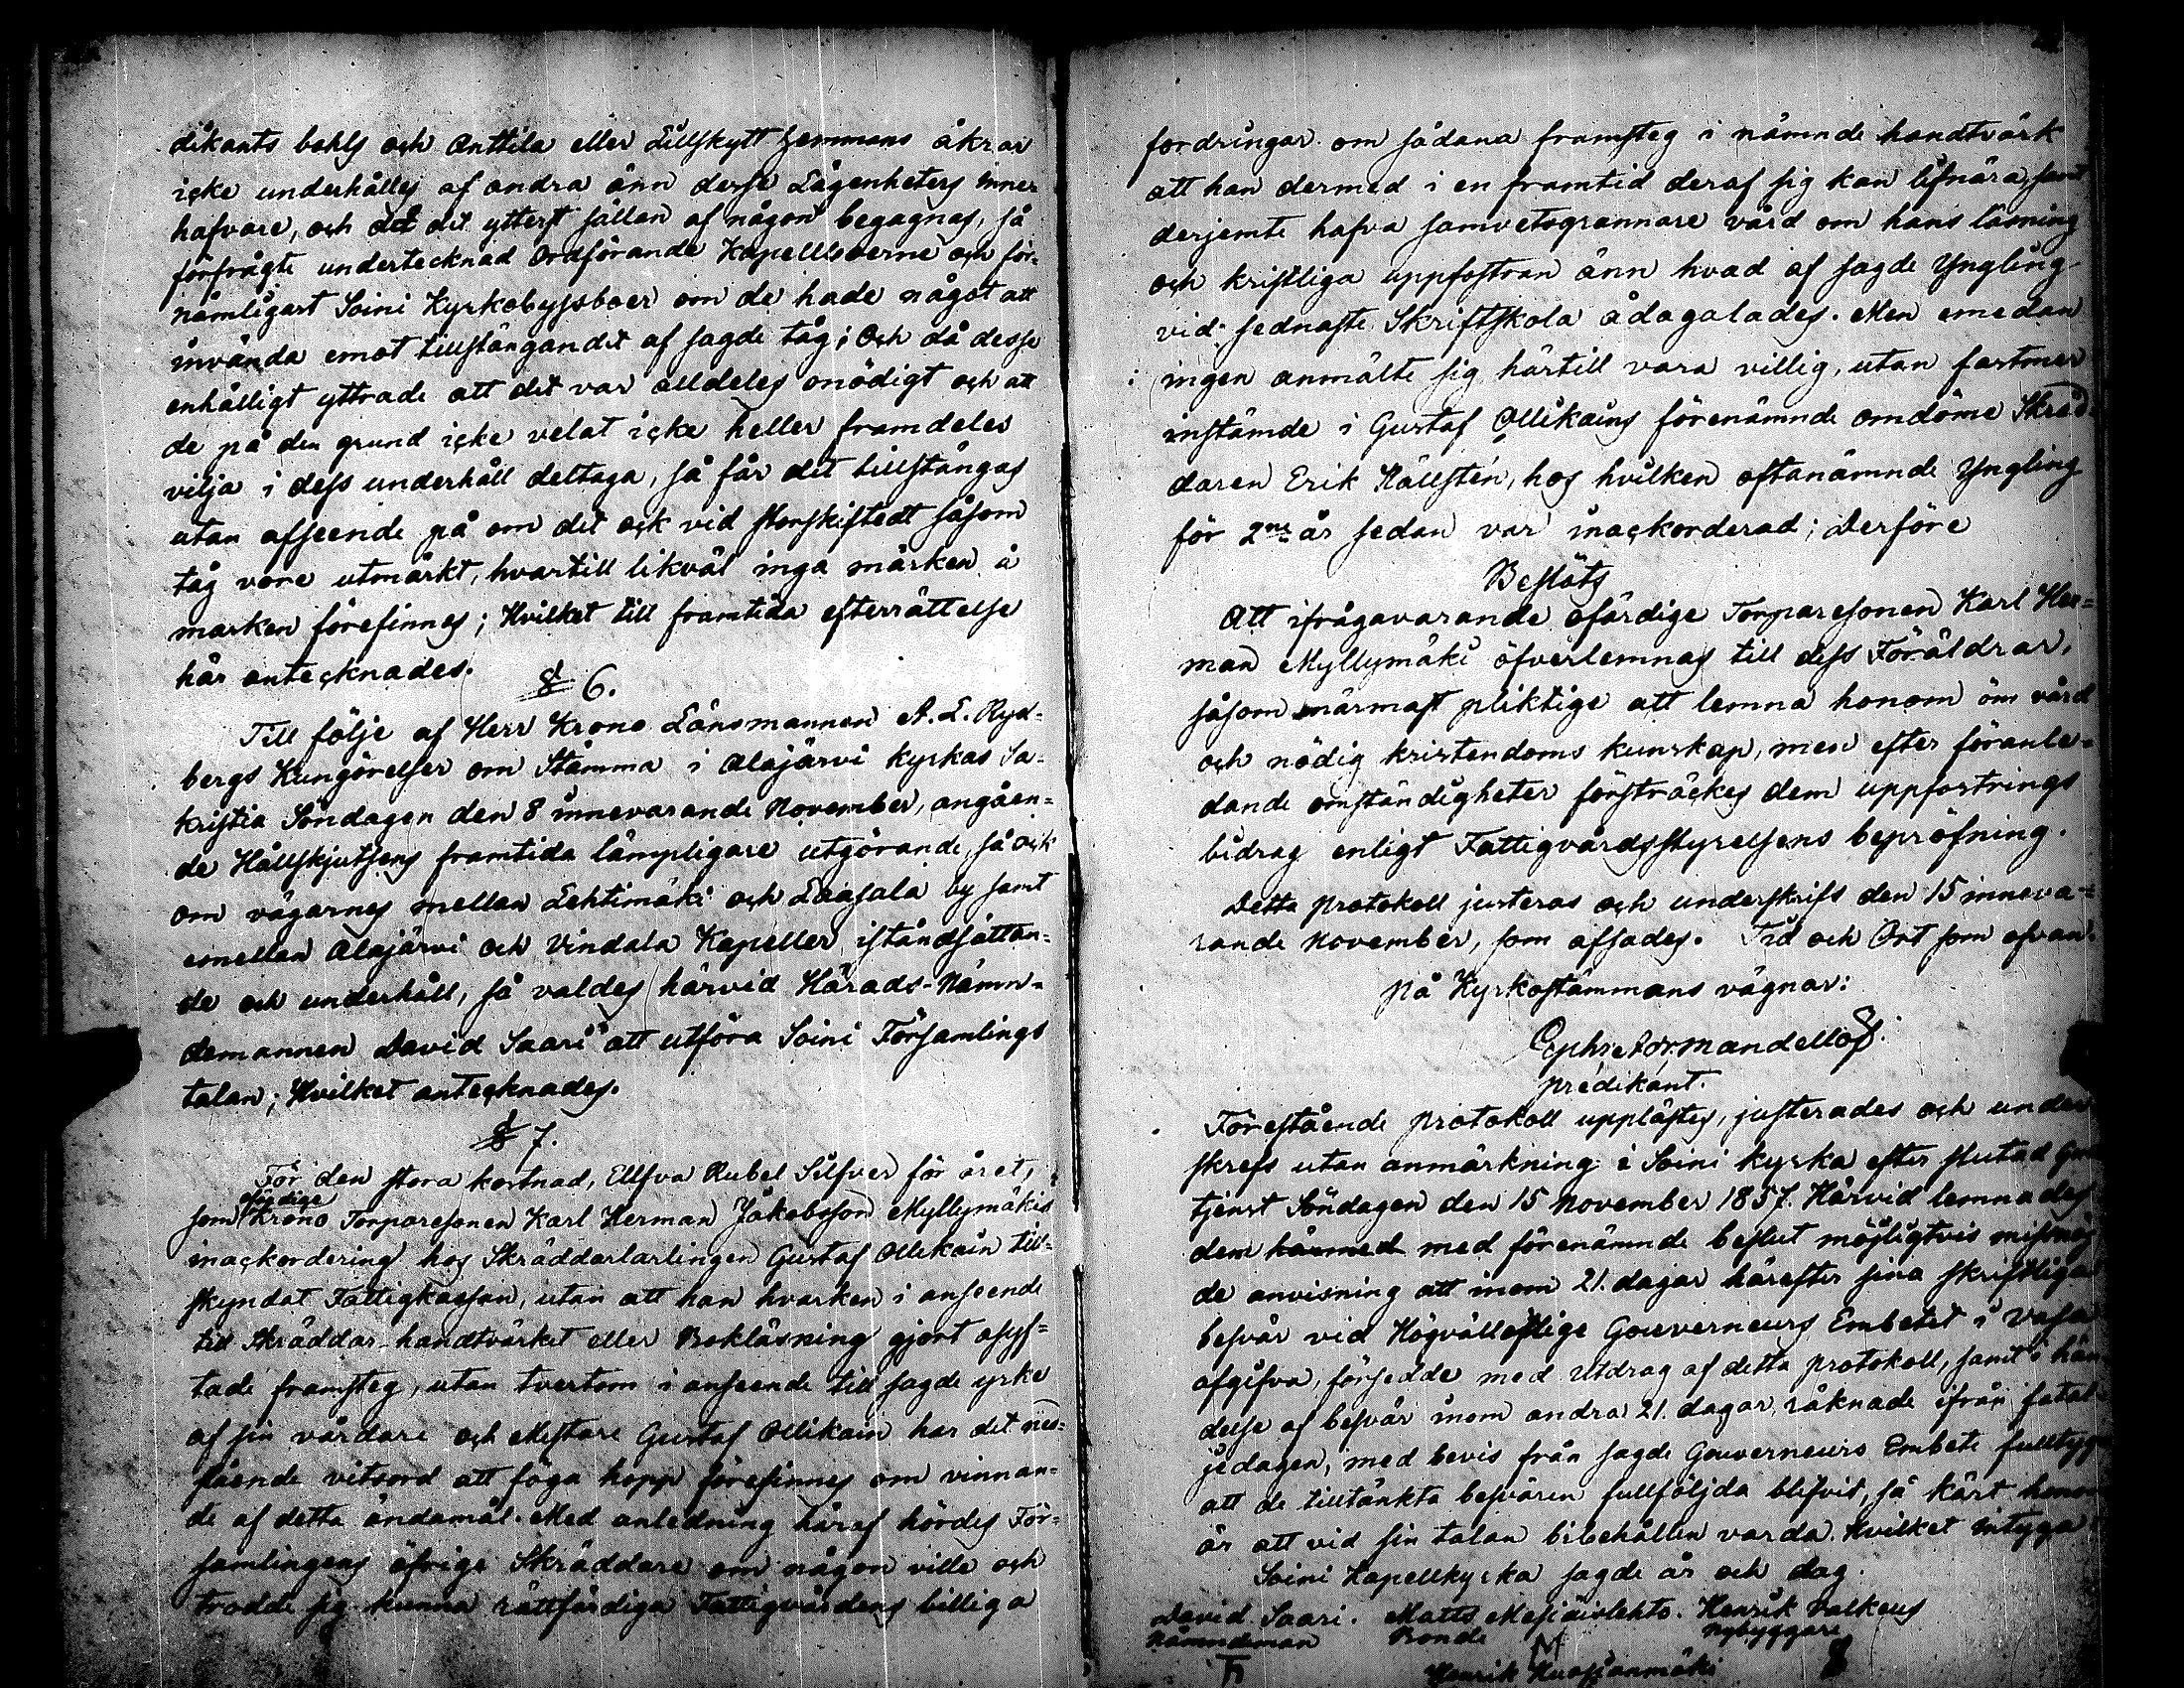 dikants bohls och Anttila eller Tillskytt hemmans åkrar
icke underhålles af andra änn desse Lägenheters inne-
hafvare, och det det ytterst sällan af någon begagnas, så
förfrågte undertecknad Ordförande Kapellboerne och för-
nämligast Soini Kyrkobyssboer om de hade något att
invända emot tillstängandet af sagde tåg; Och då desse
enhälligt yttrade att det var alldeles onödigt och att
de på den grund icke velat icke heller framdeles
vilja i dess underhåll deltaga, så får det tillstängas
utan afseende på om det ock vid storskiftedt såsom
tåg vore utmärkt, hvartill likväl inga märken å
marken förefinnes; Hvilket till framtida efterrättelse
här antecknades.
§ 6.
Till följe af Herr Krono Länsmannen A. L. Ryd-
bergs Kungörelser om Stämma i Alajärvi kyrkas Sa-
kristia Söndagen den 8 innevarande November, angåen-
de Hållskjutsens framtida lämpligare utgörande, så ock
om vägarnes mellan Lehtimäki och Laasala by samt
emellan Alajärvi och Vindala Kapeller iståndsättan-
de och underhåll, så valdes härvid Härads-Nämn-
demannen David Saari att utföra Soini Församlings
talan; Hvilket antecknades.
§ 7.
För den stora kostnad, Ellfva Rubel Silfver för året,
som ofärdige Krono Torparesonen Karl Herman Jakobsson Myllymäkis
inackordering hos Skräddarlärlingen Gustaf Ollikain till-
skyndat Fattigkassan, utan att han hvarken i anseende
till Skräddar-handtvärket eller Bokläsning gjort åsyf-
tade framsteg, utan tvertom i anseende till sagde yrke
af sin vårdare och Mestare Gustaf Ollikain har det ned-
slående vitsord att föga hopp förefinnes om vinnan-
de af detta ändamål. Med anledning häraf hördes För-
samlingens öfrige Skräddare om någon ville och
trodde sig kunna rättfärdiga Fattigvårdens billiga
fordringar om sådana framsteg i nämnde handtvärk
att han dermed i en framtid deraf sig kan lifnära, samt
derjemte hafva samvetsgrannare vård om hans läsning
och kristliga uppfostran änn hvad af sagde Yngling
vid sednaste Skriftskola ådagalades. Men emedan
ingen anmälte sig härtill vara villig, utan fastmer
instämde i Gustaf Ollikains förenämnde omdöme Skräd-
daren Erik Hällstén, hos hvilken oftanämnde Yngling
för 2ne år sedan var inackorderad; Derföre
Beslöts
Att ifrågavarande ofärdige Torparesonen Karl Her-
man Myllymäki öfverlemnas till dess Föräldrar,
såsom närmast pliktige att lemna honom öm vård
och nödig kristendoms kunskap, men efter föranle-
dande omständigheter försträckes dem uppfostrings
bidrag enligt Fattigvårdsstyrelsens bepröfning.
Detta protokoll justeras och underskrifs den 15 inneva-
rande November, som afsades. Tid och Ort som ofvan.
På Kyrkostämmans vägnar:
predikant.
Förestående protokoll upplästes, justerades och under
skrefs utan anmärkning i Soini kyrka efter slutad Gud
tjenst Söndagen den 15 November 1857. Härvid lemnades
dem härmed med förenämnde beslut möjligtvis missnöj
de anvisning att inom 21. dagar härefter sina skriftliga
besvär vid Högvälloflige Gouverneurs Embetet i Vasa
afgifva, försedde med Utdrag af detta protokoll, samt i hän
delse af besvär inom andra 21. dagar, räknade ifrån fatal
jedagen, med bevis från sagde Gouverneurs Embete fulltyga
att de tilltänkta besvären fullföljda blifvit, så kärt honom
är att vid sin talan bibehållen varda. Hvilket intyga
Soini Kapellkyrka sagde år och dag.
David Saari. Matts Henrik Valkeus
Nämndeman Bonde Nybyggare
Henrik